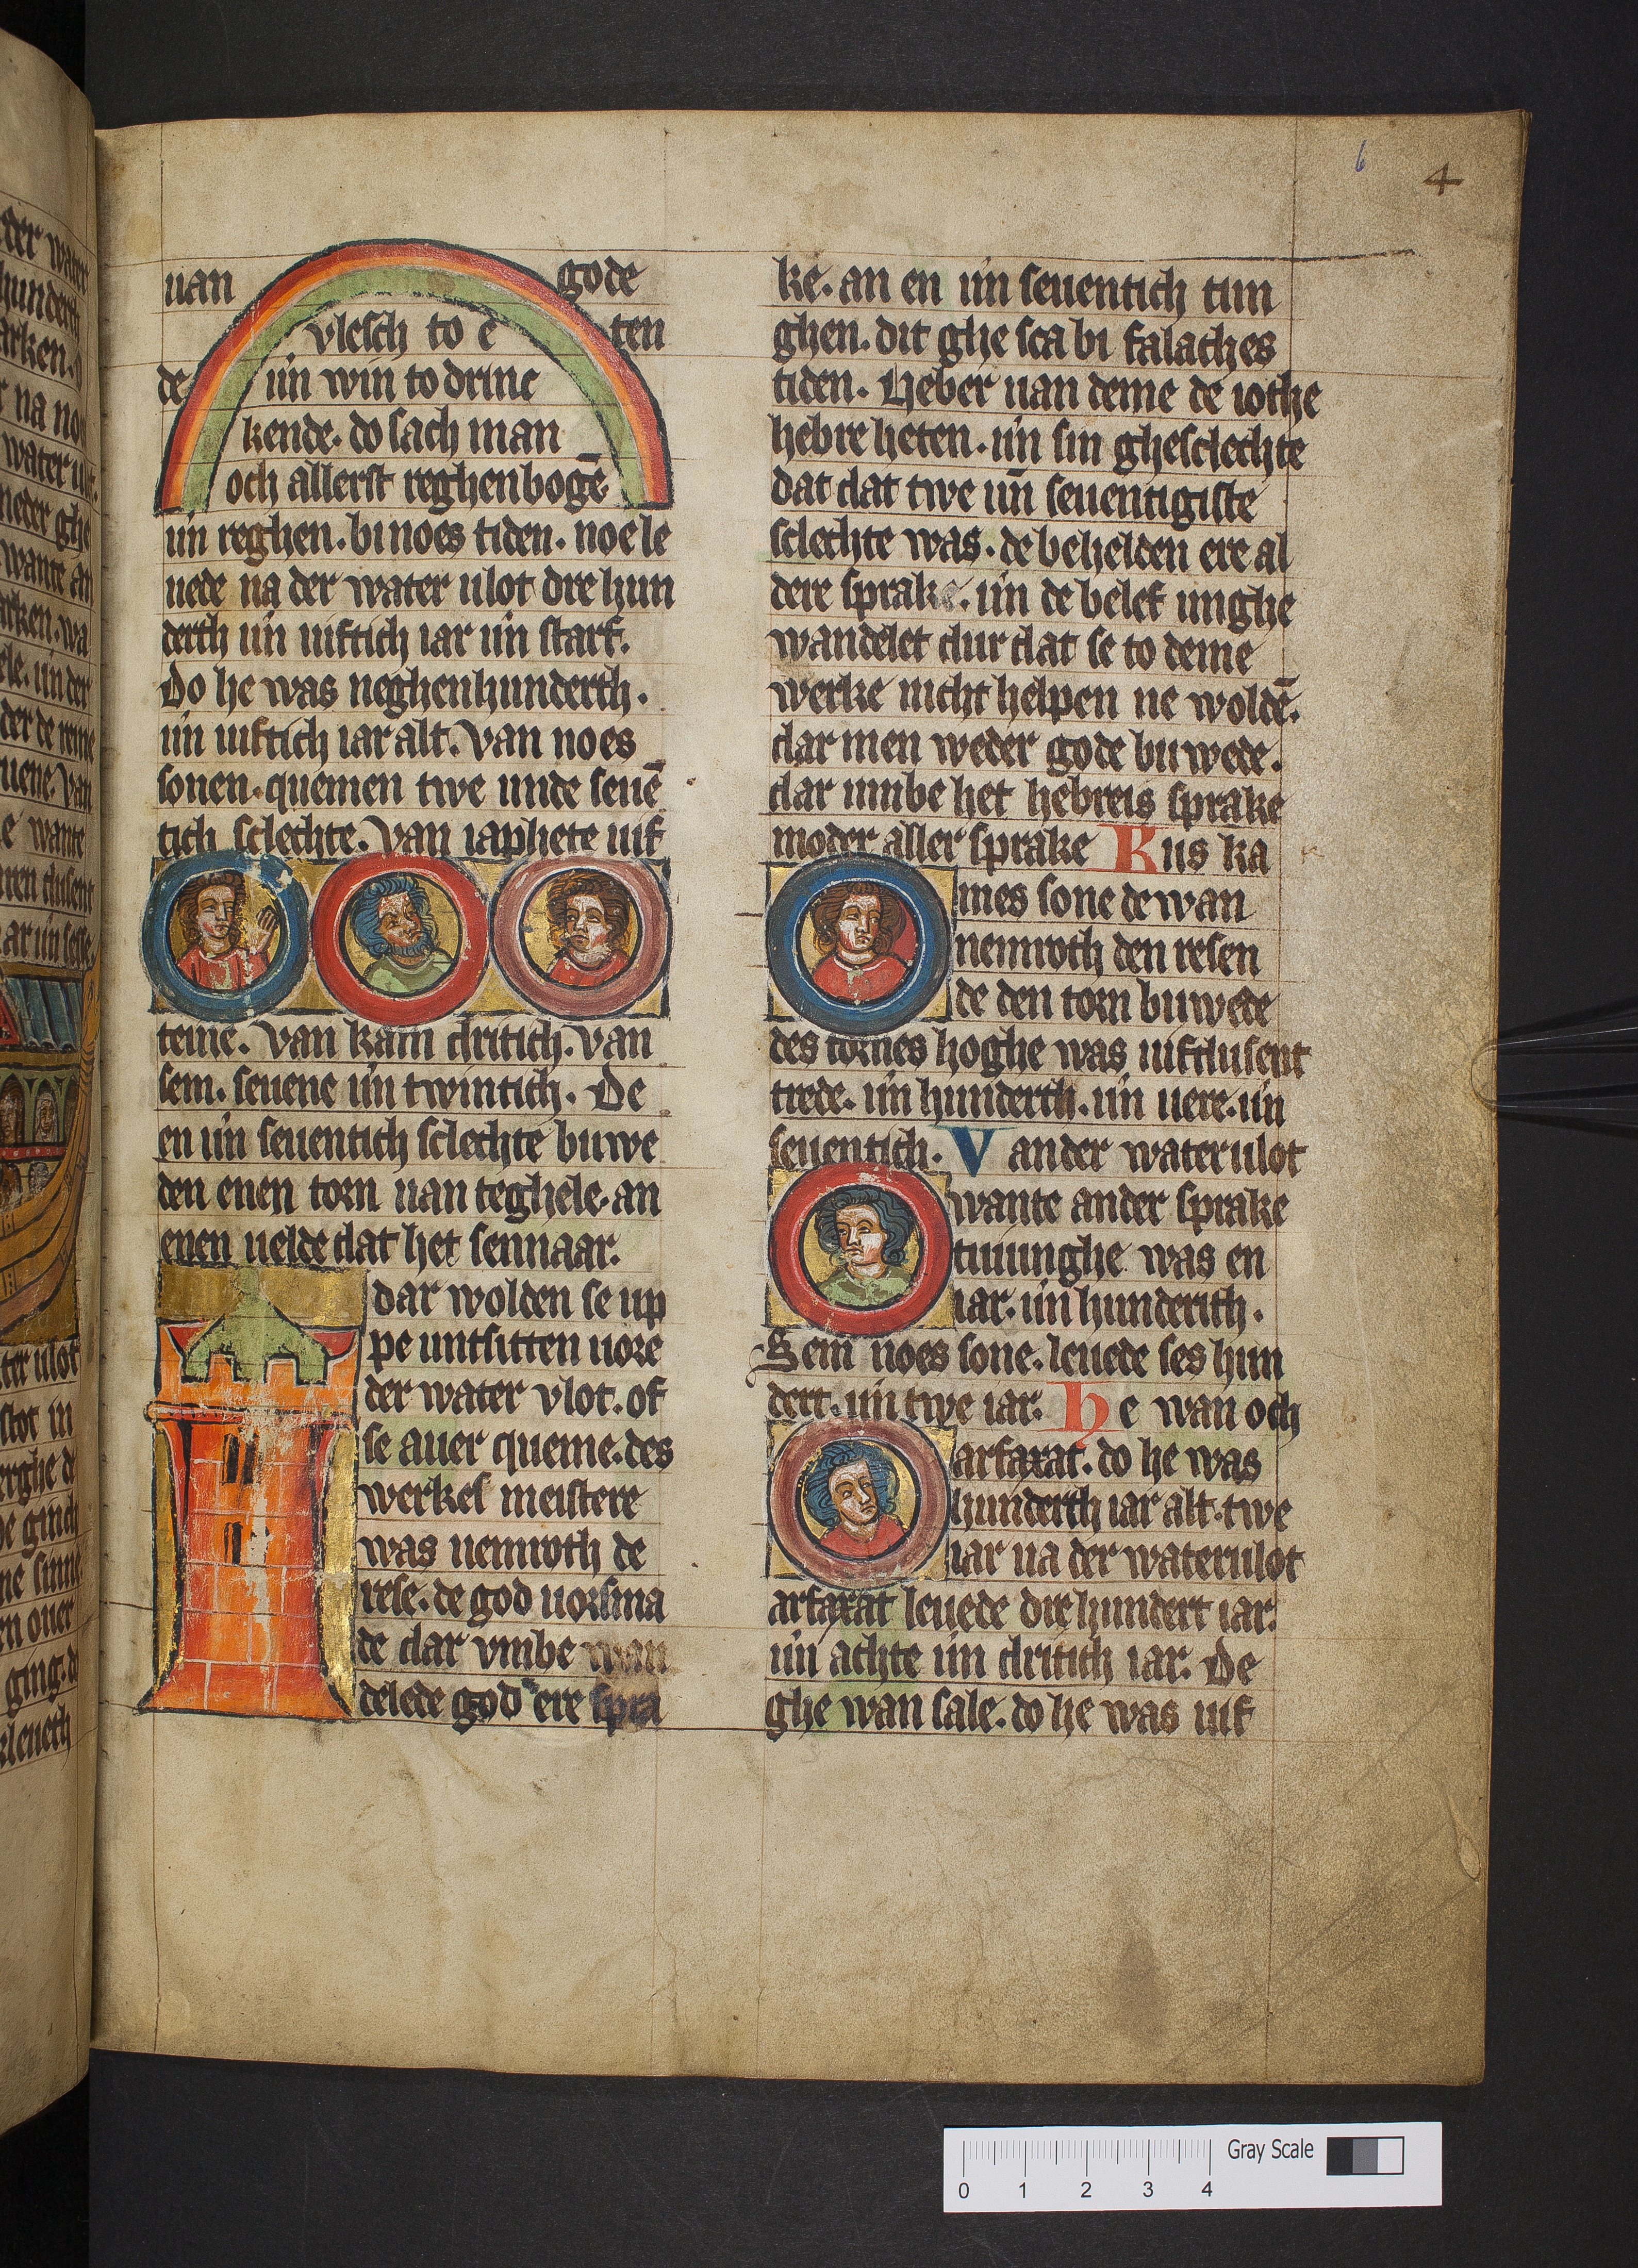 6 4
uan gode
vlesch to e ten
de uń win to drinc
kende. do sach man
och allerst reghenbogē
uń reghen. bi noes tiden. noe le
uede na der water ulot dre hun
derth uń uiftich iar uń starf.
Do he was neghenhunderth.
uń uiftich iar alt. Van noes
sonen. quemen twe unde seuē
tich sclechte. Van iaphete uif
teine. Van kam dritich. van
sem. seuene uń twintich. De
en uń seuentich sclechte buwe
den enen torn uan teghele. an
enen uelde dat het sennaar.
dar wolden se up
pe untsitten uore
der water vlot. of
se auer queme. des
werkes meistere
was nemroth de
rese. de god uorsma
de dar vmbe wan
delede god ere spra
ke. an en uń seuentich tun
ghen. dit ghe sca bi falaches
tiden. Heber uan deme de iothe
hebre heten. uń sin ghesclechte
dat dat twe uń seuentigiste
sclechte was. de behelden ere al
dere sprake. uń de belef unghe
wandelet dur dat se to deme
werke nicht helpen ne woldē.
dar men weder gode buwede.
dar umbe het hebreis sprake
moder aller sprake Kus ka
mes sone de wan
nemroth den resen
de den torn buwede
des tornes hoghe was uifdusent
trede. uń hunderth. uń uere. uń
seuentich. Van der water ulot
wante ander sprake
tuiunghe was en
iar. uń hunderith.
Sem noes sone. leuede ses hun
dert. uń twe iar. he wan och
arfaxat. do he was
hunderth iar alt. twe
iar na der water ulot
arfaxat leuede drehundert iar.
uń achte uń dritich iar. De
ghe wan sale. do he was uif
Gray Scale
0 1 2 3 4